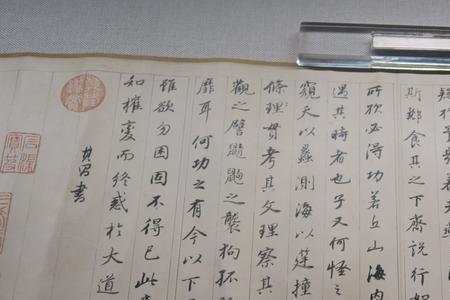 斯酈食其之下齊說行如
所欲必得功若丘山海内
遇其時者也子又何怪之
窺天以蠡測海以莛撞
條理貫考其文理察其
觀之譬鼱鼩之襲狗孤
靡耳何功之有今以下
雖欲勿困固不得已此
知權變而終惑於大道
其昌書